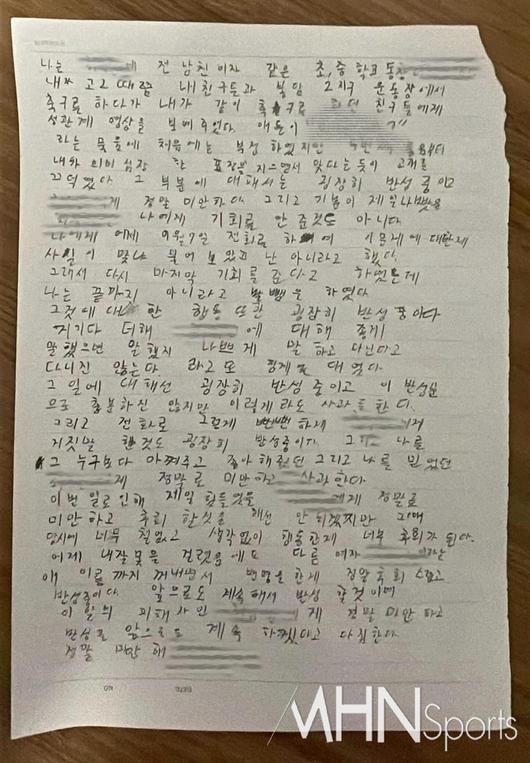 나는 에 전 남친 이자 같은 초,중 학교 동창
내가 고2 때쯤 내 친구들과 2지구 운동장에서
축구를 하다가 내가 같이 축구를 하던 친구들에게
성관계 영상을 보여주었다. 애들이
라는 물음에 처음에는 부정 하였지만
내가 의미 심장 한 표정을 지으면서 맞다는 듯이 고개를
끄덕였다. 그 부분에 대해서는 굉장히 반성 중이고
게 정말 미안하다. 그리고 기분이 제일 나빴을
나에게 기회를 안 준것도 아니다.
나에게 어제 9월7일 전화를 하여 이 문제에 대한게
사실이 맞냐 물어 보았고 난 아니라고 했다.
그래서 다시 마지막 기회를 준다고 하였는데
나는 끝까지 아니라고 발뺌을 하였다
그것에 대해 한 행동 또한 굉장히 반성 중이다
거기다 더해 에 대해 좋게
말했으면 말했지 나쁘게 말 하고 다닌다고
다니진 않는다 라고도 핑계를 대었다.
그 일에 대해선 굉장히 반성 중이고 이 반성문
으로 충분하진 않지만 이렇게 라도 사과를 한다.
그리고 전화로 그렇게 뻔뻔하게 에게
거짓말 한것도 굉장히 반성중이다. 그리고 나를
그 누구보다 아껴주고 좋아해줬던 그리고 나를 믿었던
게 정말로 미안하고 사과한다
이번 일로 인해 제일 힘들었을 에게 정말로
미안하고 후회 한짓을 해선 안되겠지만 그때
당시에 너무 철없고 생각없이 행동한게 너무 후회가 된다.
어제 내 잘못을 걸렸음에도 다른 여자 이라는
애 이름까지 꺼내면서 변명을 한게 정말 후회 스럽고
반성중이다. 앞으로도 계속해서 반성 할것이며
이 일의 피해자인 게 정말 미안하고
반성을 앞으로도 계속 하겠다고 다짐한다
정말 미안해
MHN Sports